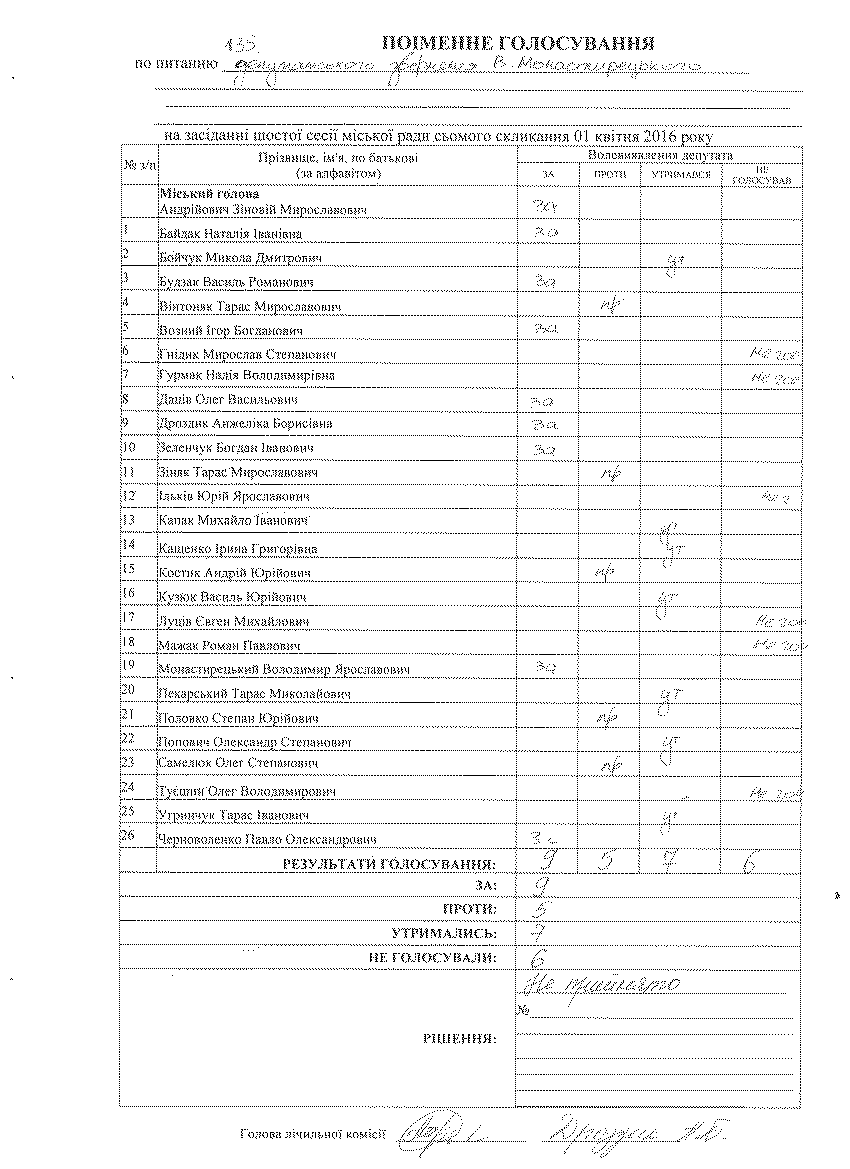 135
ПОІМЕННЕ ГОЛОСУВАННЯ
по питанню депутатського звернення В. Монастирецького
на засіданні шостої сесії міської ради сьомого скликання 01 квітня 2016 року
№ з/п Прізвище, ім'я, по батькові (за алфавітом) Волевиявлення депутата
ЗА ПРОТИ УТРИМАВСЯ НЕ ГОЛОСУВАВ
Міський голова
Андрійович Зіновій Мирославович за
1 Байдак Наталія Іванівна за
2 Бойчук Микола Дмитрович ут
3 Будзак Василь Романович за
4 Вінтоняк Тарас Мирославович пр
5 Возний Ігор Богданович за
6 Гнідик Мирослав Степанович не гол
7 Гурмак Надія Володимирівна не гол
8 Даців Олег Васильович за
9 Дроздик Анжеліка Борисівна за
10 Зеленчук Богдан Іванович за
11 Зіняк Тарас Мирославович пр
12 Ільків Юрій Ярославович не г
13 Капак Михайло Іванович ут
14 Кащенко Ірина Григорівна ут
15 Костик Андрій Юрійович пр
16 Кузюк Василь Юрійович ут
17 Луців Євген Михайлович не гол
18 Мажак Роман Павлович не гол
19 Монастирецький Володимир Ярославович за
20 Пекарський Тарас Миколайович ут
21 Половко Степан Юрійович пр
22 Попович Олександр Степанович ут
23 Самелюк Олег Степанович пр
24 Туєшин Олег Володимирович не гол
25 Угринчук Тарас Іванович ут
26 Черноволенко Павло Олександрович за
РЕЗУЛЬТАТИ ГОЛОСУВАННЯ: 9 5 7 6
ЗА: 9
ПРОТИ: 5
УТРИМАЛИСЬ: 7
НЕ ГОЛОСУВАЛИ: 6
Не прийнято
№
РІШЕННЯ:
Голова лічильної комісії